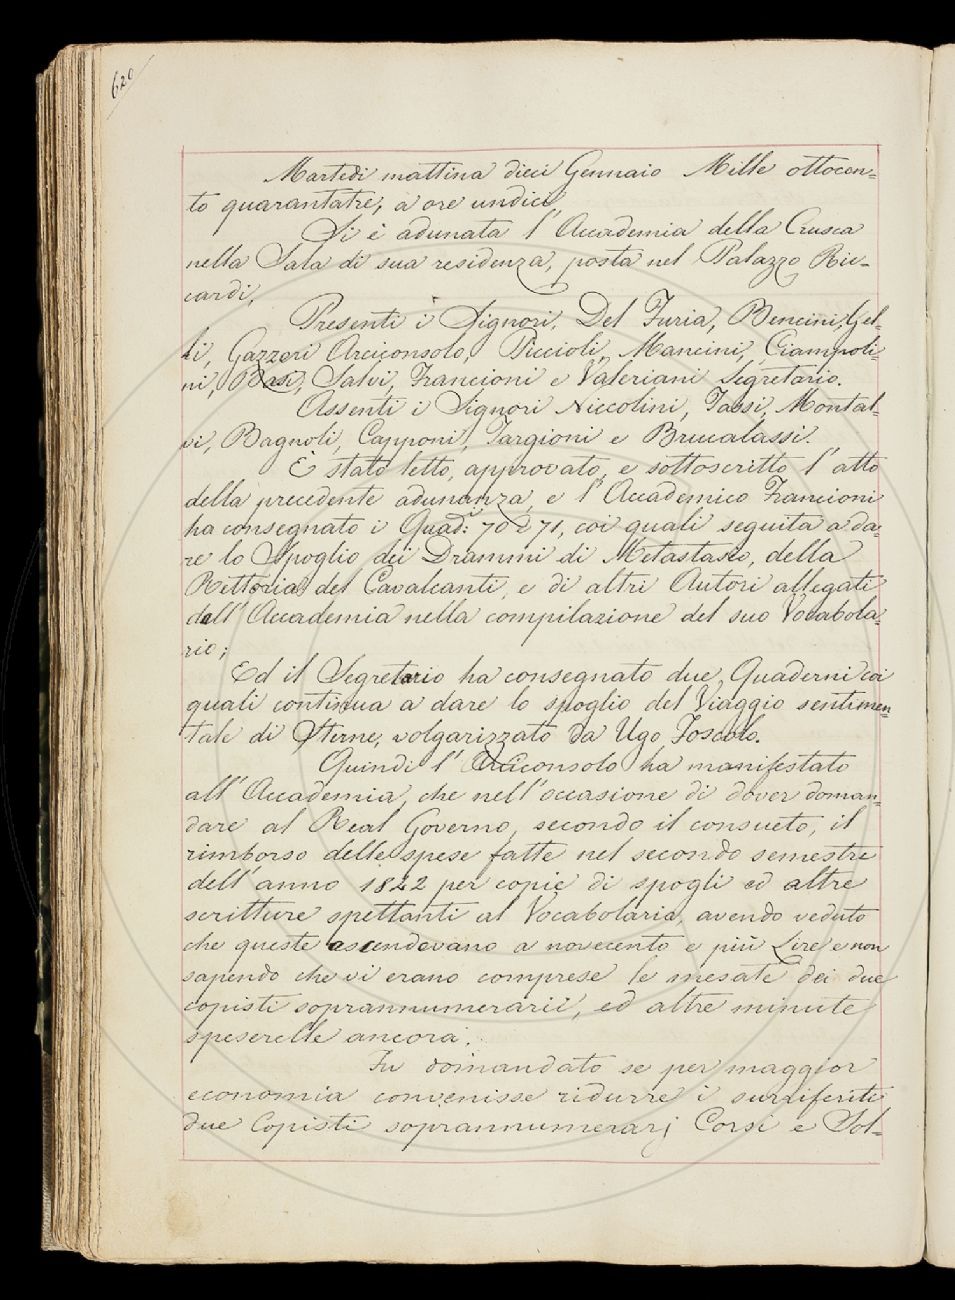 620
Martedì mattina dieci Gennaio Mille ottocen=
to quarantatre, a ore undici
Si è adunata l'Accademia della Crusca
nella Sala di sua residenza, posta nel Palazzo Ric=
cardi,
Presenti i Signori. Del Furia, Bencini, Gel=
li, Gazzeri Arciconsolo, Piccioli, Mancini, Ciampoli=
ni, Basi, Salvi, Francioni e Valeriani Segretario.
Assenti i Signori Niccolini, Tassi, Montal=
vi, Bagnoli, Capponi, Targioni e Brucalassi.
È stato letto, approvato, e sottoscritto l'atto
della precedente adunanza, e l'Accademico Francioni
ha consegnato i Quad: 70 e 71, coi quali seguita a da=
re lo Spoglio dei Drammi di Metastasio, della
Rettorica del Cavalcanti, e di altri Autori allegati
dall'Accademia nella compilazione del suo Vocabola=
rio;
Ed il Segretario ha consegnato due Quaderni coi
quali continua a dare lo spoglio del Viaggio sentimen=
tale di Sterne, volgarizzato da Ugo Foscolo.
Quindi l'Arciconsolo ha manifestato
all'Accademia, che nell'occasione di dover doman=
dare al Real Governo, secondo il consueto, il
rimborso delle spese fatte nel secondo semestre
dell'anno 1822 per copie di spogli ed altre
scritture spettanti al Vocabolario, avendo veduto
che queste ascendevano a novecento e più Lire e non
sapendo che vi erano comprese le mesate dei due
copisti soprannumerarii, ed altre minute
speserelle ancora;
Fu domandato se per maggior
economia convenisse ridurre i surriferiti
due Copisti soprannumerarj Corsi e Sol=